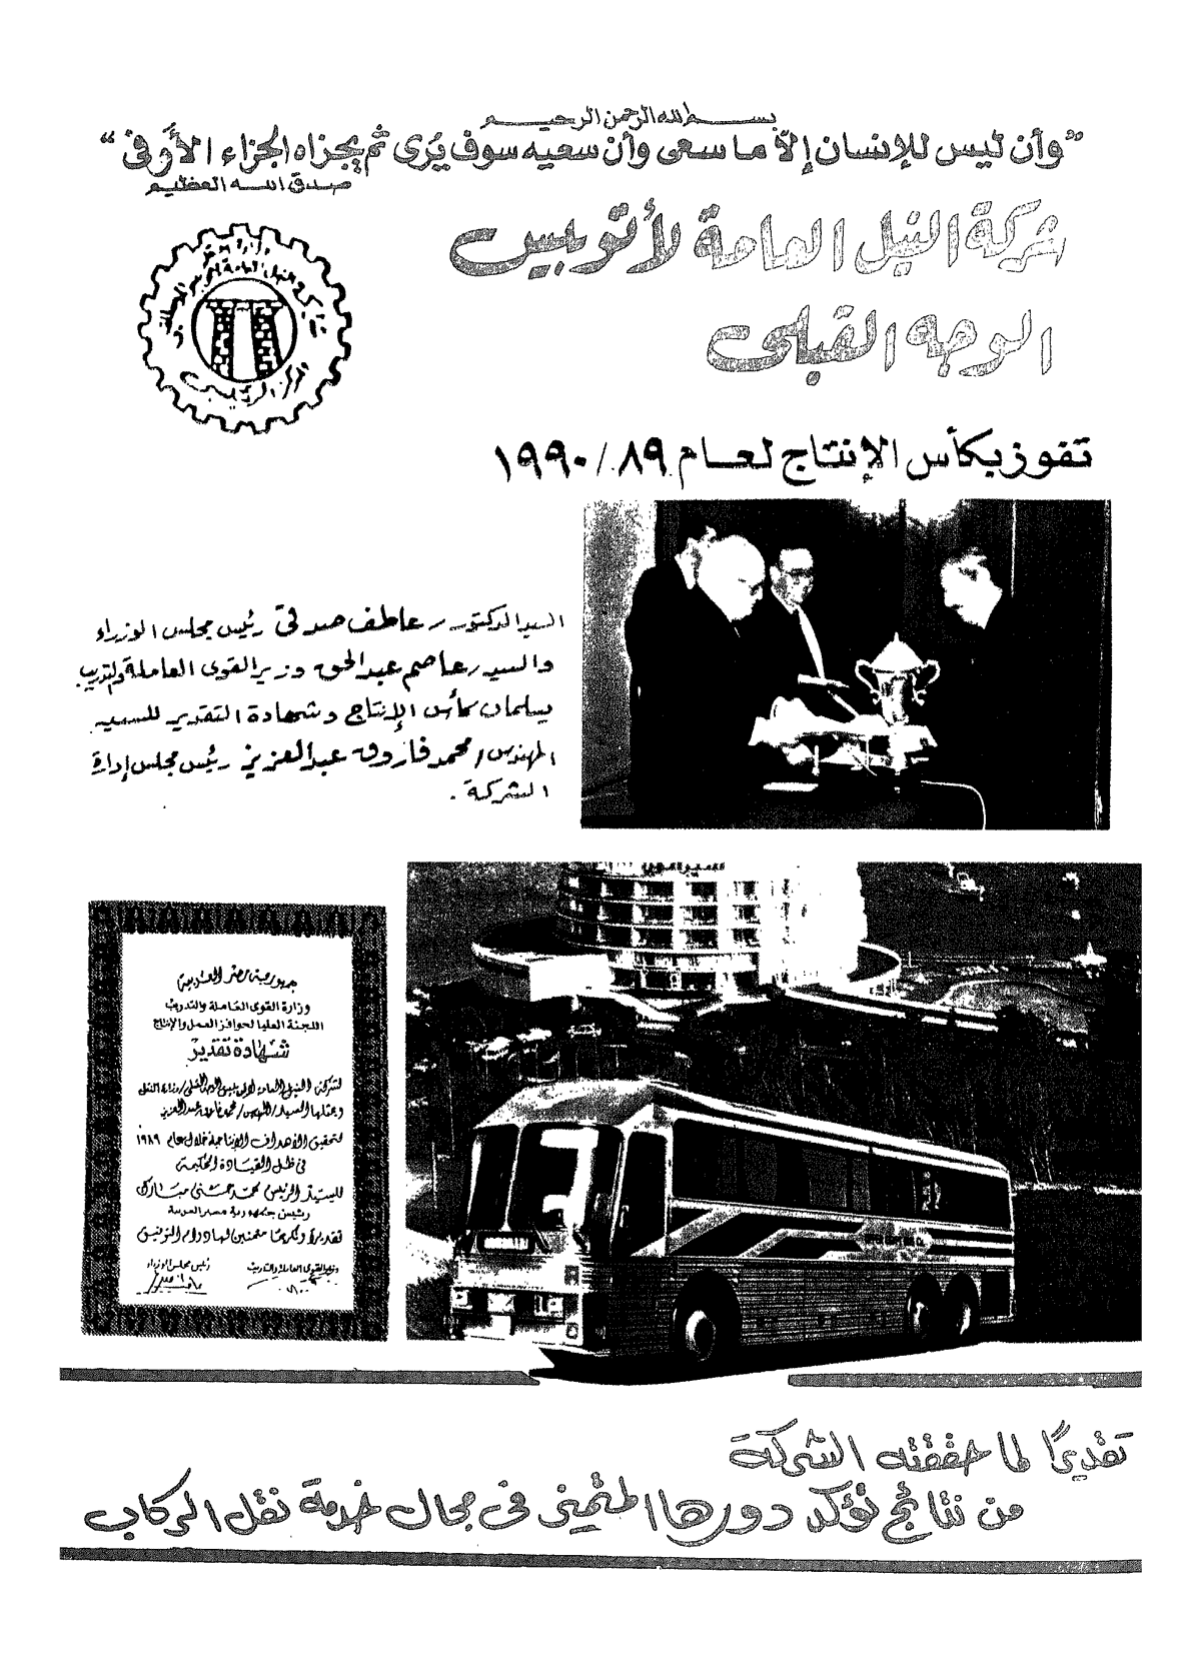 بسم الله الرحمن الرحيم
”وأن ليس للإنسان إلاّ ما سعى وأن سعيه سوف يُرى ثم يجزاه الجزاء الأوفى“
صدق الله العظيم
شركة النيل العامة لأتوبيس
الوجه القبلى
تفوز بكأس الإنتاج لعام ٨٩/ ١٩٩٠
السيد الدكتور / عاطف صدقى رئيس مجلس الوزراء
والسيد / عاصم عبد الحق وزير القوى العاملة والتدريب
يسلمان كأس الإنتاج وشهادة التقدير للسيد
المهندس / محمد فاروق عبد العزيز رئيس مجلس إدارة
الشركة .
جمهورية مصر العربية
وزارة القوى العاملة والتدريب
اللجنة العليا لحوافز العمل والإنتاج
شهادة تقدير
لشركة النيل العامة لأتوبيس الوجه القبلى / وزارة النقل
ويمثلها السيد / المهندس / محمد فاروق عبد العزيز
لتحقيق الأهداف الإنتاجية خلال عام ١٩٨٩
فى ظل القيادة الحكيمة
للسيد الرئيس محمد حسنى مبارك
رئيس جمهورية مصر العربية
تقديراً وتكريماً متمنين لها دوام التوفيق
رئيس مجلس الوزراء
وزير القوى العاملة والتدريب
تقديرًا لما حققته الشركة
من نتائج تؤكد دورها المتميز فى مجال خدمة نقل الركاب